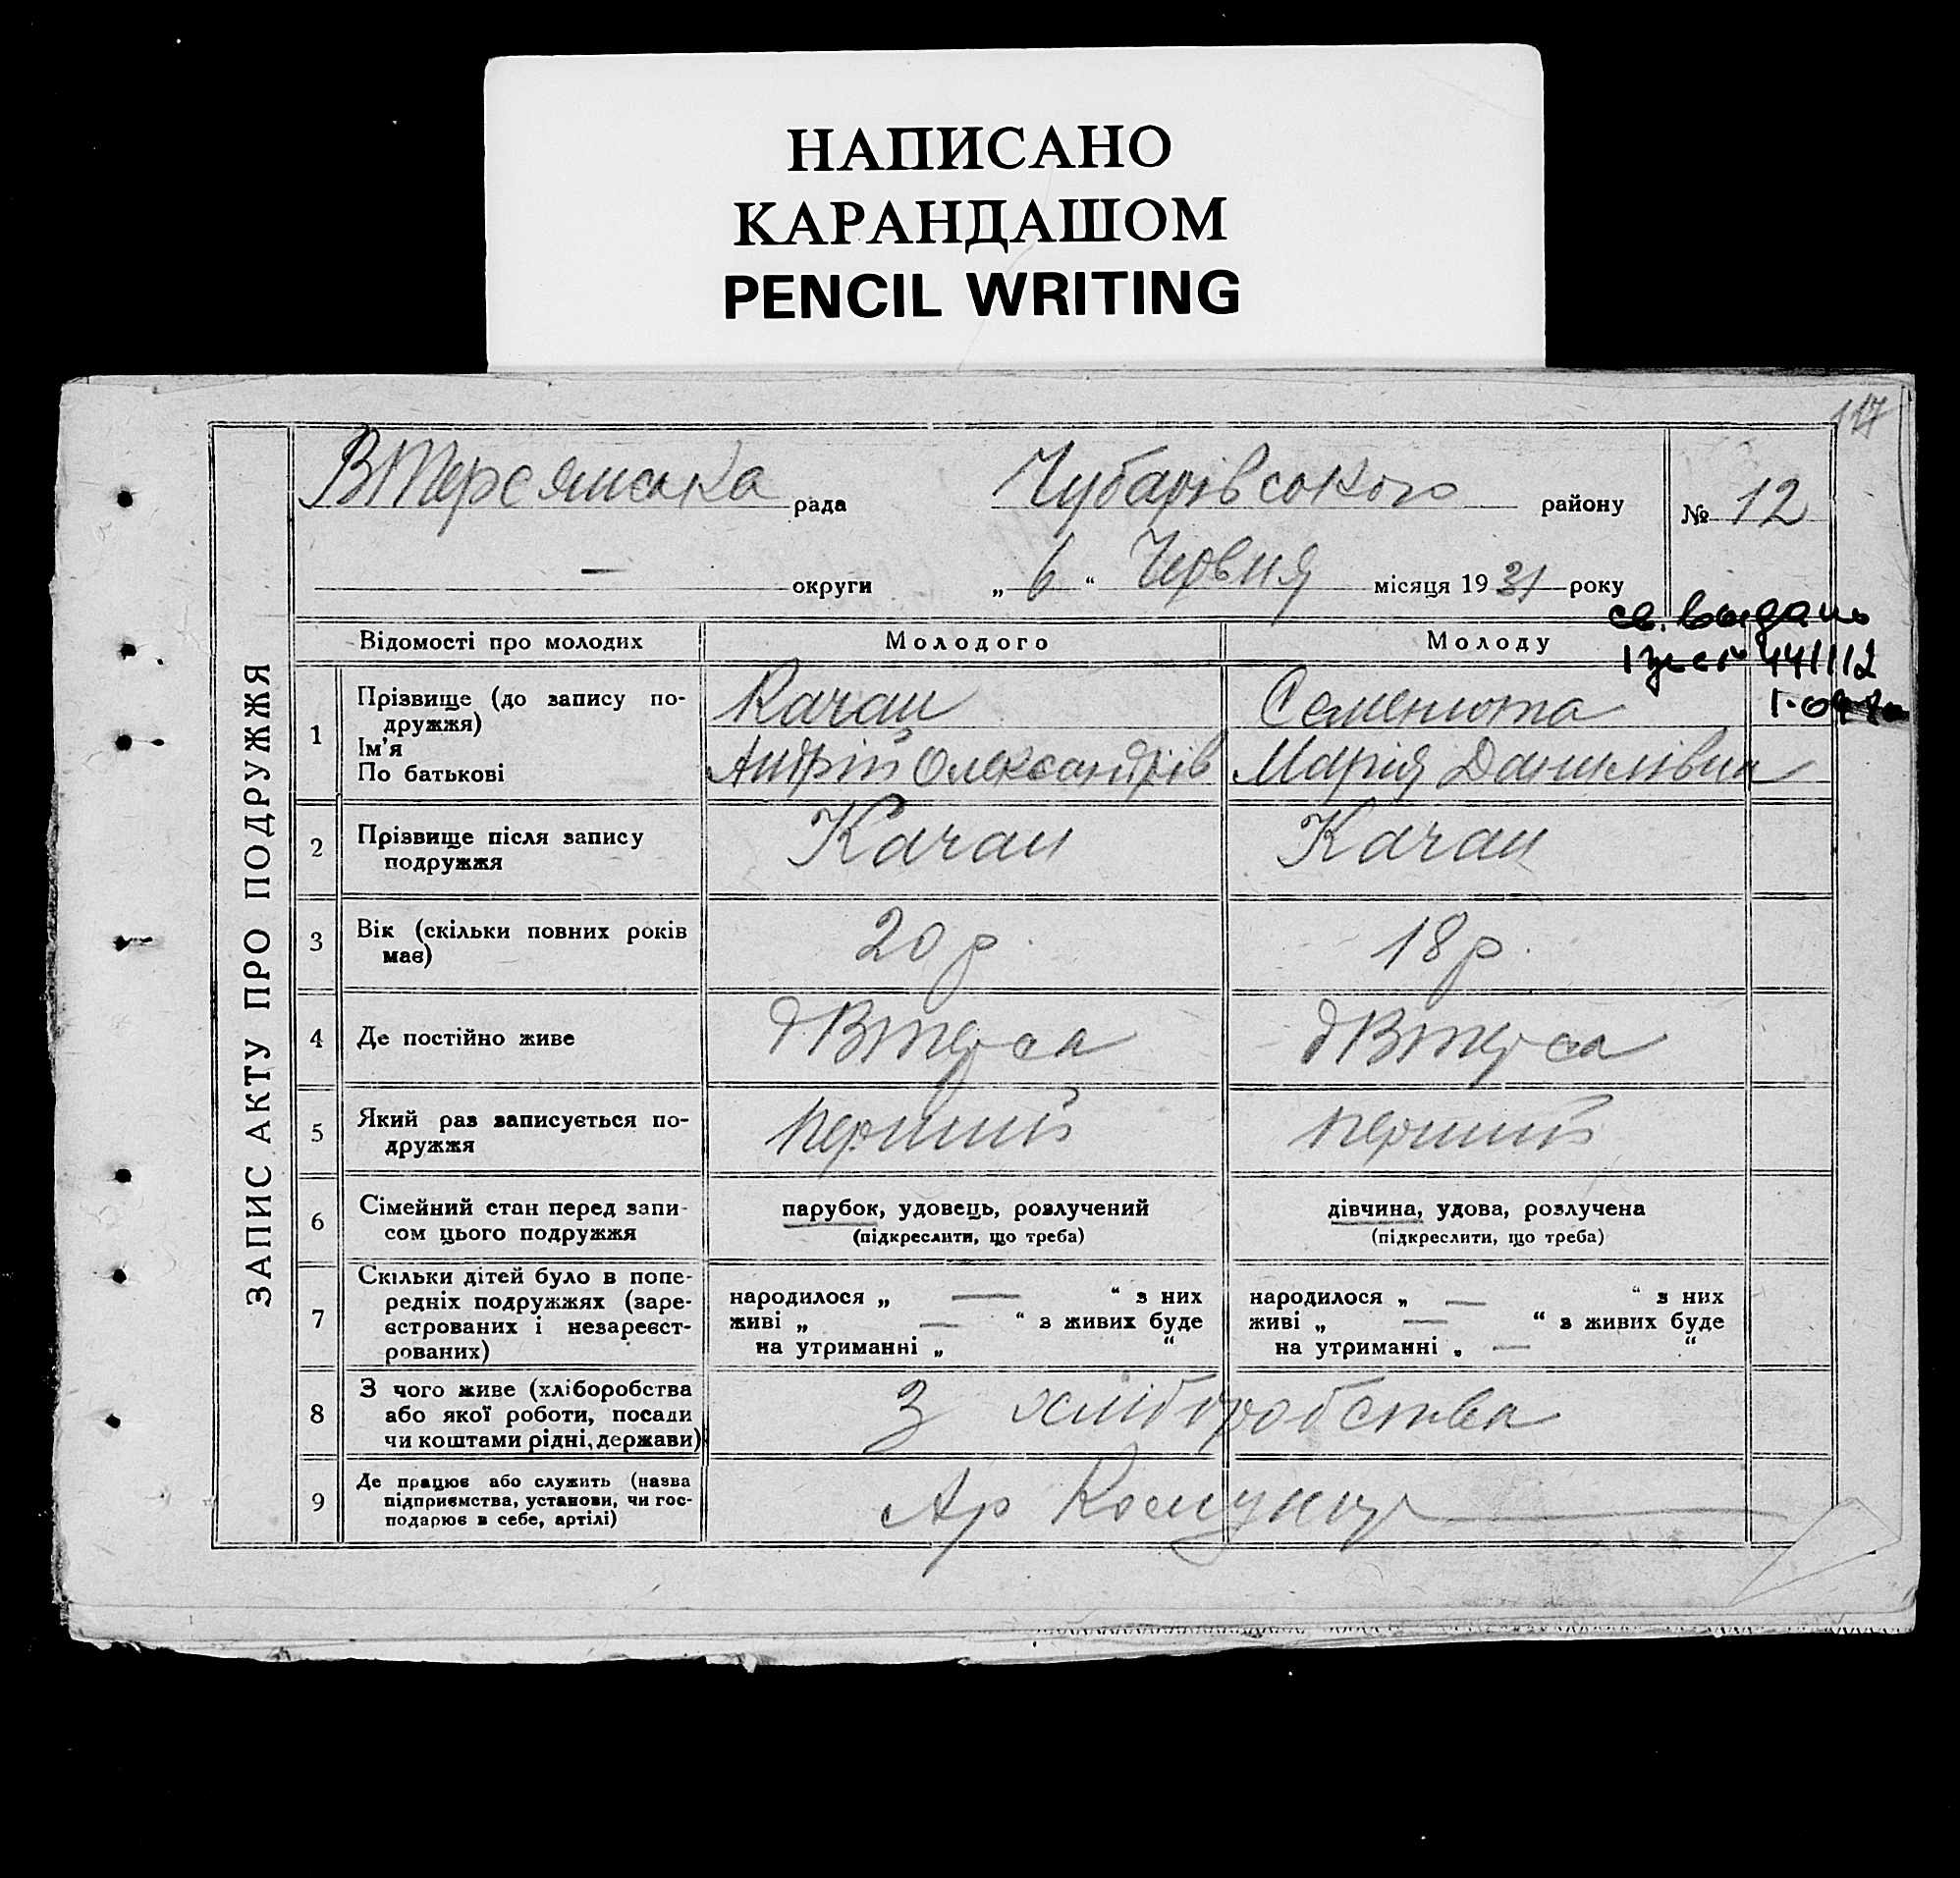 НАПИСАНО
КАРАНДАШОМ
PENCIL WRITING
117
ЗАПИС АКТУ ПРО ПОДРУЖЖЯ
ВТерсянська рада Чубарівського району № 12
— округи „ 6 “ Червня місяця 1931 року
св. выдано
Відомості про молодих Молодого Молоду
441112
1 Прізвище (до запису по-
дружжя) Качан Семенюта
Ім’я
По батькові Андрій Олександрів Марія Данилівна
2 Прізвище після запису
подружжя Качан Качан
3 Вік (скільки повних років
має) 20 р. 18 р.
4 Де постійно живе ВТерса ВТерса
5 Який раз записується по-
дружжя перший перший
6 Сімейний стан перед запи-
сом цього подружжя
парубок, удовець, розлучений
(підкреслити, що треба)
дівчина, удова, розлучена
(підкреслити, що треба)
7 Скільки дітей було в попе-
редніх подружжях (заре-
єстрованих і незареєст-
рованих)
народилося „ — “ з них
живі „ — “ з живих буде
на утриманні „ “
народилося „ — “ з них
живі „ — “ з живих буде
на утриманні „ — “
8 З чого живе (хліборобства
або якої роботи, посади
чи коштами рідні, держави)
З хліборобства
9 Де працює або служить (назва
підприємства, установи, чи гос-
подарює в себе, артілі)
Ар Комунар